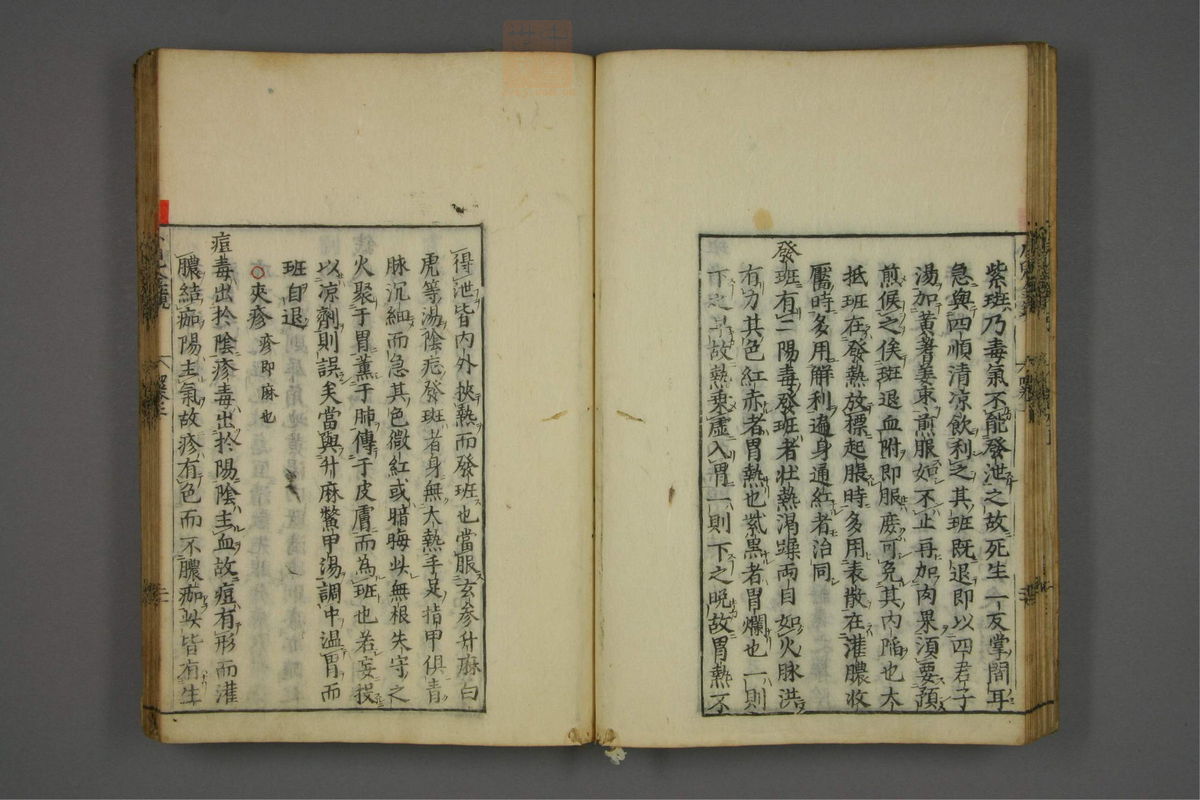 紫班乃毒氣不能發泄之故死生一反掌間耳
急與四順清凉飲利之其班既退即以四君子
湯加黄蓍姜東煎服如不止再加肉果須要預
煎候之俟班退血附即服庶可免其内陷也大
抵班在發熱放標起脹時多用表散在灌膿收
靨時多用解利遍身通紅者治同
發班有二陽毒發班者壮熱渇躁兩目如火脉洪
有力其色紅赤者胃熱也紫黒者胃爛也一則
下之早故熱乗虚入胃一則下之晩故胃熱不
得泄皆内外挾熱而發班也當服玄参升麻白
虎等湯陰症發班者身無大熱手足指甲俱青
脉沉細而急其色微紅或暗晦此無根失守之
火聚于胃薫于肺傳于皮膚而為班也若妄投
以凉劑則誤矣當與升麻鱉甲湯調中温胃而
班自退
○夾疹 疹即麻也
痘毒出於陰疹毒出於陽陰主血故痘有形而灌
膿結痂陽主氣故疹有色而不膿痂此皆有生